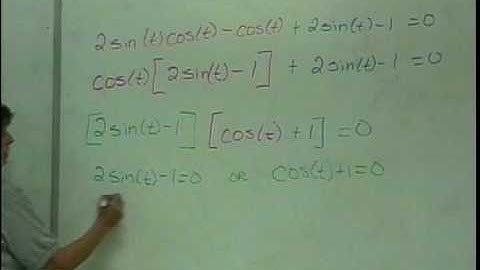 2sin(t)cos(t)-cos(t)+2sin(t)-1=0
cos(t)[2sin(t)-1] + 2sin(t)-1=0
[2sin(t)-1][cos(t)+1]=0
2sin(t)-1=0 OR cos(t)+1=0